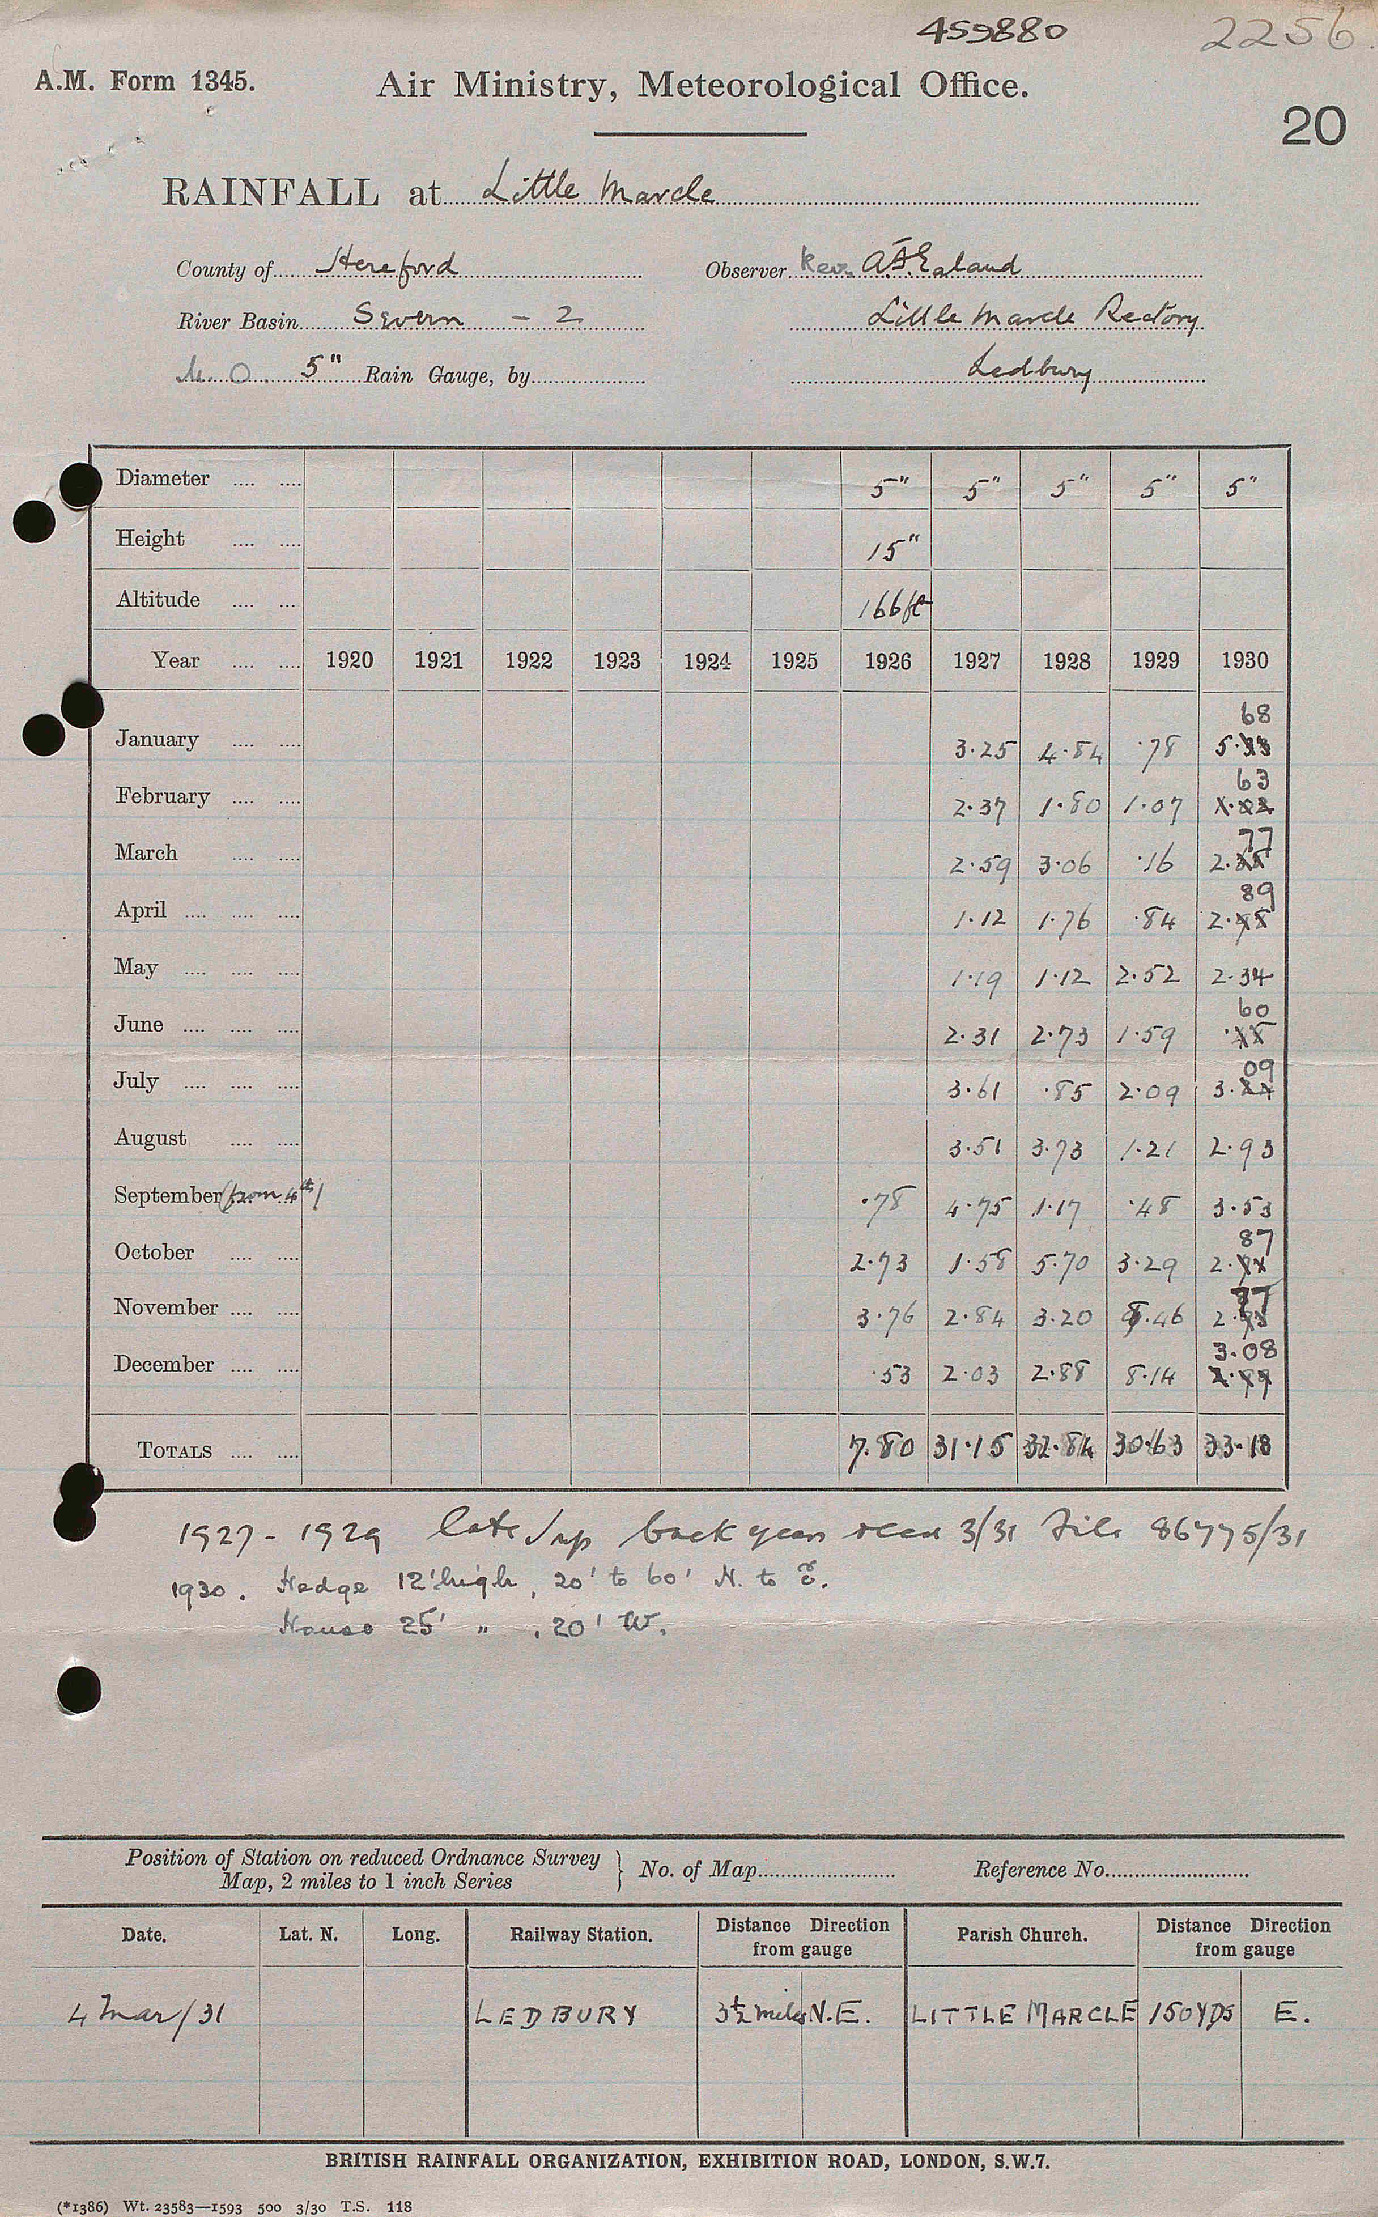 459880 2256.
A.M. Form 1345. Air Ministry, Meteorological Office.
20
RAINFALL at Little Marcle
County of Hereford Observer Rev. A.F. Ealand
River Basin Severn - 2 Little Marcle Rectory
M.O. 5" Rain Gauge, by Ledbury
Diameter .... .... 5" 5" 5" 5" 5"
Height .... .... 15"
Altitude .... ... 166 ft
Year .... .... 1920 1921 1922 1923 1924 1925 1926 1927 1928 1929 1930
68
January .... .... 3.25 4.84 .78 5.
63
February .... .... 2.37 1.80 1.07
77
March .... .... 2.59 3.06 .16 2.
89
April .... .... .... 1.12 1.76 .84 2.
May .... .... .... 1.19 1.12 2.52 2.34
60
June .... .... .... 2.31 2.73 1.59 .
09
July .... .... .... 3.61 .85 2.09 3.
August .... .... 3.51 3.73 1.21 2.93
September (from 4th) .78 4.75 1.17 .48 3.53
87
October .... .... 2.73 1.58 5.70 3.29 2.
77
November .... .... 3.76 2.84 3.20 8.46 2.
3.08
December .... .... .53 2.03 2.88 8.14
TOTALS .... .... 7.80 31.15 32.84 30.63 33.18
1927 - 1929 late back years recd 3/31 File 86775/31
1930. Hedge 12' high, 20' to 60' N. to E.
House 25' " , 20' W.
Position of Station on reduced Ordnance Survey
Map, 2 miles to 1 inch Series } No. of Map Reference No.
Date. Lat. N. Long. Railway Station. Distance Direction from gauge Parish Church. Distance Direction from gauge
4 Mar/31 LEDBURY 3½ miles N.E. LITTLE MARCLE 150 YDS E.
BRITISH RAINFALL ORGANIZATION, EXHIBITION ROAD, LONDON, S.W.7.
(*1386) Wt. 23583—1593 500 3/30 T.S. 118